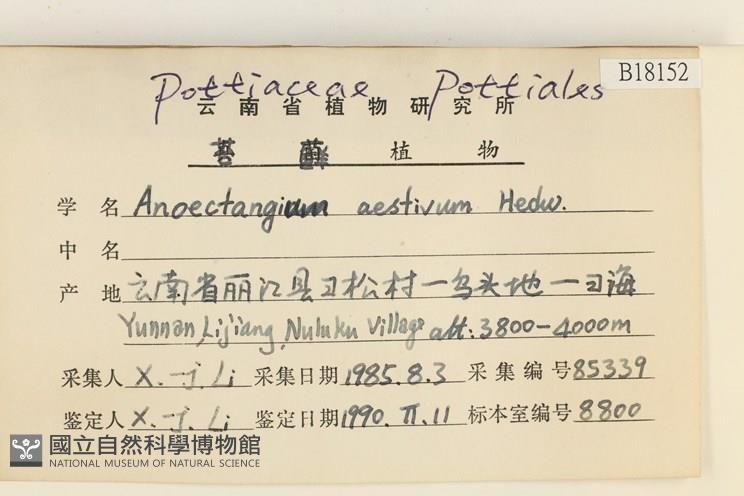 B18152
Pottiaceae Pottiales
云南省植物研究所
苔藓植物
学名 Anoectangium aestivum Hedw.
中名
产地 云南省丽江县 松村一乌头地一 海
Yunnan, Lijiang, Nuluku Village alt: 3800-4000m
采集人 X.-J. Li 采集日期 1985.8.3 采集编号 85339
鉴定人 X.-J. Li 鉴定日期 1990.II.11 标本室编号 8800
國立自然科學博物館
NATIONAL MUSEUM OF NATURAL SCIENCE